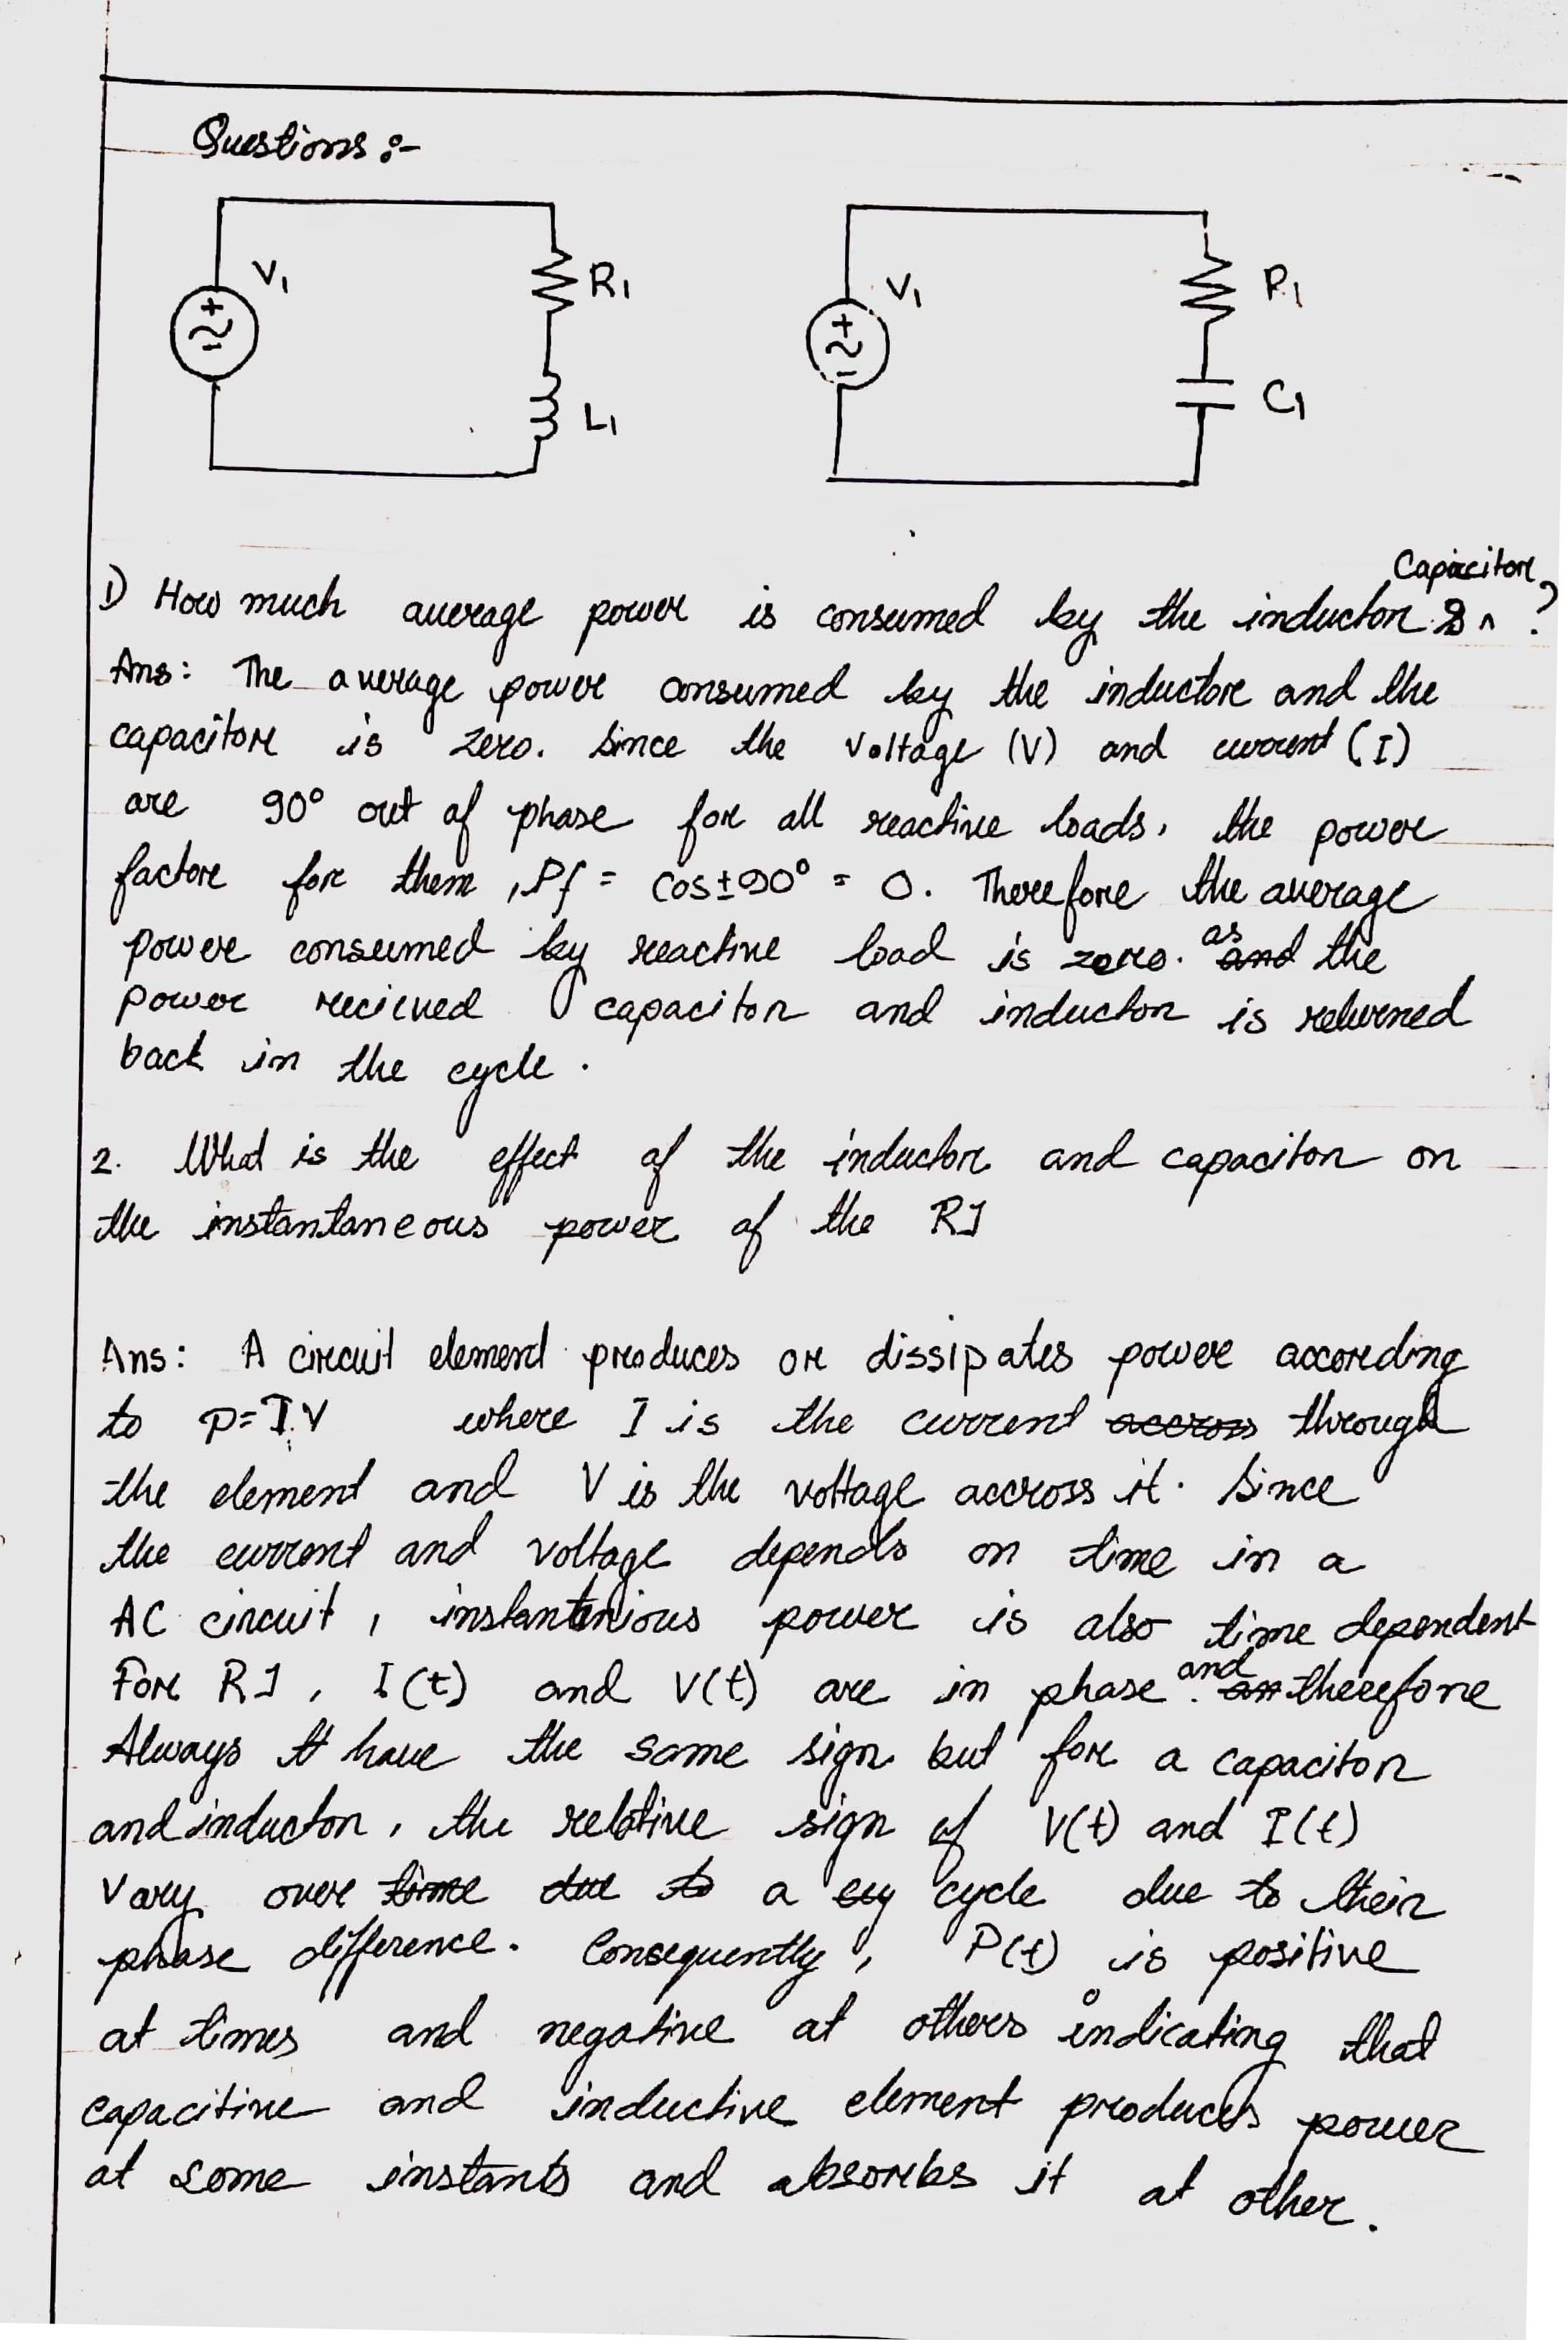 Questions :-
V1
R1
L1
V1
R1
C1
Capacitor
1) How much average power is consumed by the inductor & ^ ?
Ans: The average power consumed by the inductor and the
capacitor is zero. Since the voltage (V) and current (I)
are 90° out of phase for all reactive loads, the power
factor for them, Pf = Cos±90° = 0. Therefore the average
power consumed by reactive load is zero. as and the
power recieved capacitor and inductor is returned
back in the cycle.
2. What is the effect of the inductor and capacitor on
the instantaneous power of the R1
Ans: A circuit element produces or dissipates power according
to P=I.V where I is the current accross through
the element and V is the voltage accross it. Since
the current and voltage depends on time in a
AC circuit, instantenious power is also time dependent
For R1, I(t) and V(t) are in phase. and therefore
Always have the same sign but for a capacitor
and inductor, the relative sign of V(t) and I(t)
Vary over time due to a cy cycle due to their
phase difference. Consequently, P(t) is positive
at times and negative at others indicating that
capacitive and inductive element produces power
at some instants and absorbs it at other.